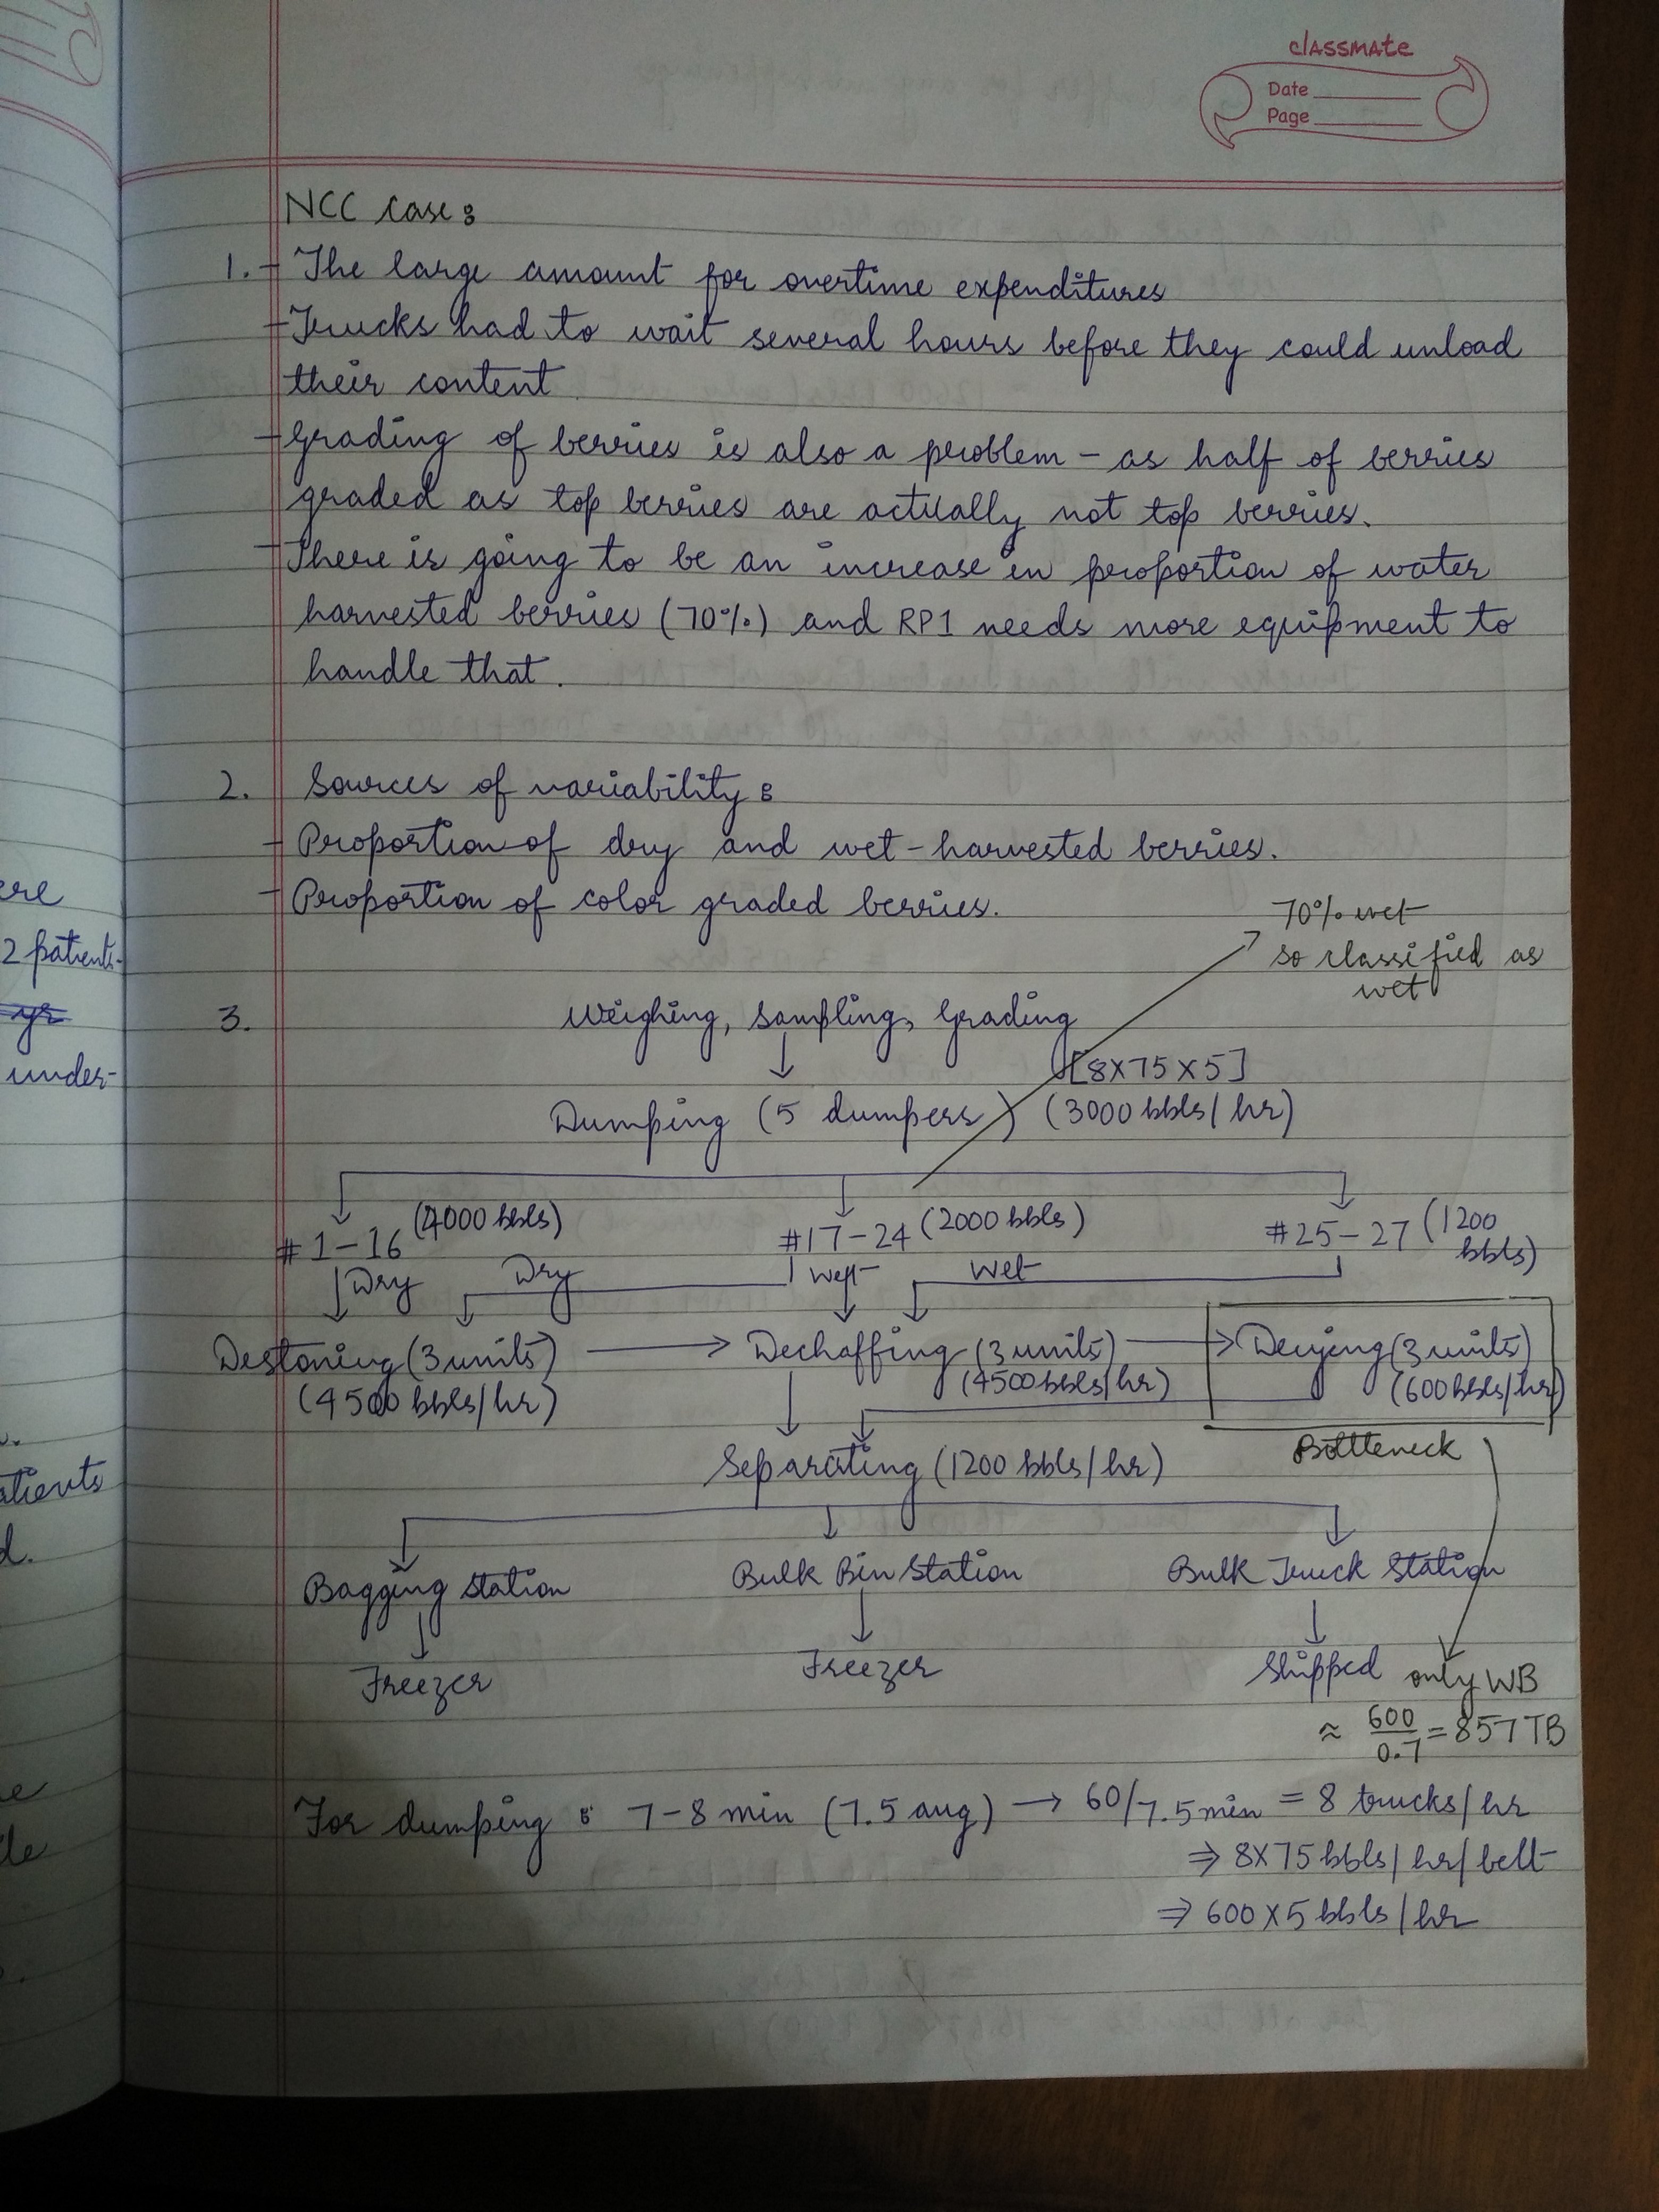 classmate
Date
Page
NCC Case :
1. - The large amount for overtime expenditures
- Trucks had to wait several hours before they could unload
their content
- Grading of berries is also a problem - as half of berries
graded as top berries are actually not top berries.
- There is going to be an increase in proportion of water
harvested berries (70%) and RP1 needs more equipment to
handle that.
2. Sources of variability :
- Proportion of dry and wet-harvested berries.
- Proportion of color graded berries.
70% wet
so classified as
wet
3. Weighing, sampling, grading
[8X75X5]
Dumping (5 dumpers) (3000 bbls/hr)
#1-16 (4000 bbls) #17-24 (2000 bbls) #25-27 (1200 bbls)
Dry Dry Wet Wet
Destoning (3 units) Dechaffing (3 units) Drying (3 units)
(4500 bbls/hr) (4500 bbls/hr) (600 bbls/hr)
Bottleneck
Separating (1200 bbls/hr)
Bagging Station Bulk Bin Station Bulk Truck Station
Freezer Freezer Shipped only WB
≈ 600/0.7 = 857 TB
For dumping : 7-8 min (7.5 avg) → 60/7.5min = 8 trucks/hr
⇒ 8X75 bbls/hr/belt
⇒ 600 X 5 bbls/hr
ere
2 patients-
under-
atients
d.